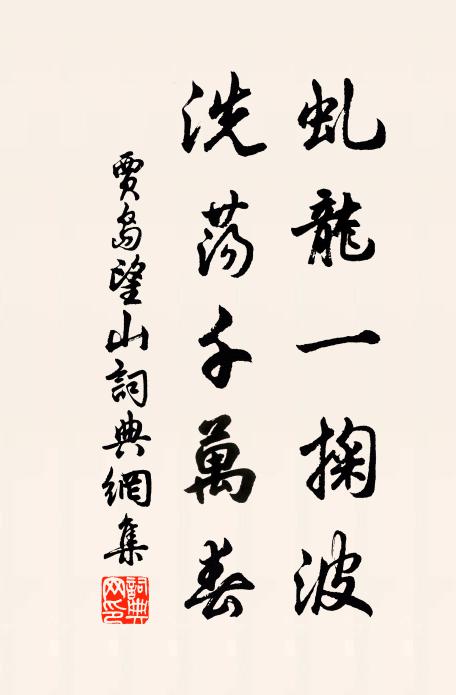 虬龍一掬波
洗荡千萬春
賈島望山詞典網集
詞典網印